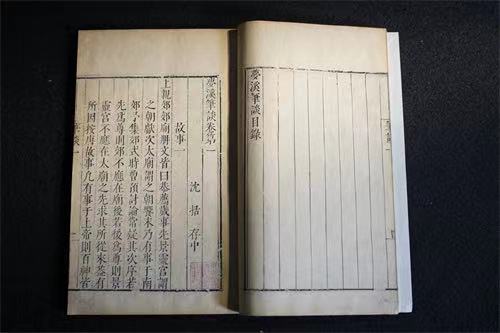 夢溪筆談目錄
夢溪筆談卷第一
沈括存中
故事一
上親郊郊廟冊文皆曰恭薦歲事先景靈宮謂
之朝獻次太廟謂之朝饗末乃有事于南
郊予集郊式時曾預討論常疑其次序若
先爲尊則郊不應在太廟後若後爲尊則景
靈宮不應在太廟之先求其所從來蓋有
所因按唐故事凡有事于上帝則百神皆
筆談一